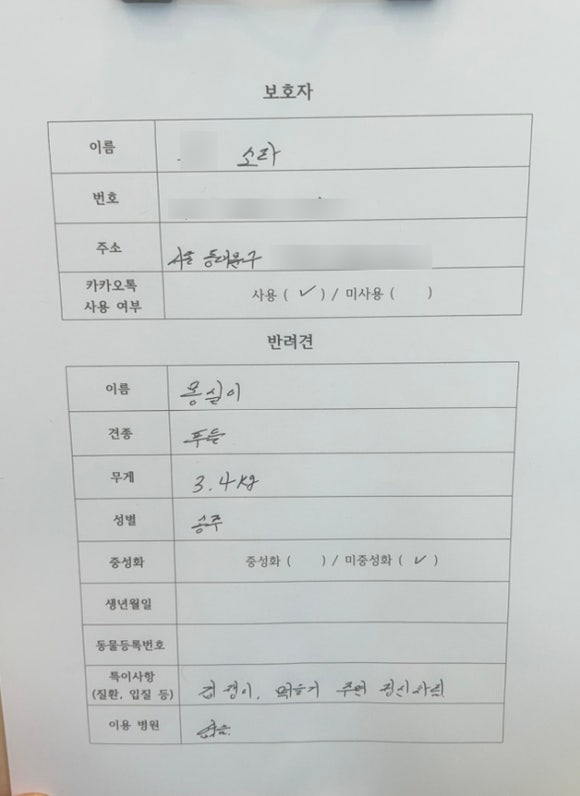 보호자
이름 소라
번호
주소 서울 동대문구
카카오톡
사용 여부 사용 ( ✓ ) / 미사용 ( )
반려견
이름 몽실이
견종 푸들
무게 3.4kg
성별 공주
중성화 중성화 ( ) / 미중성화 ( ✓ )
생년월일
동물등록번호
특이사항
(질환, 입질 등) 겁쟁이, 먹을거 주면 정신차림
이용 병원 없음.